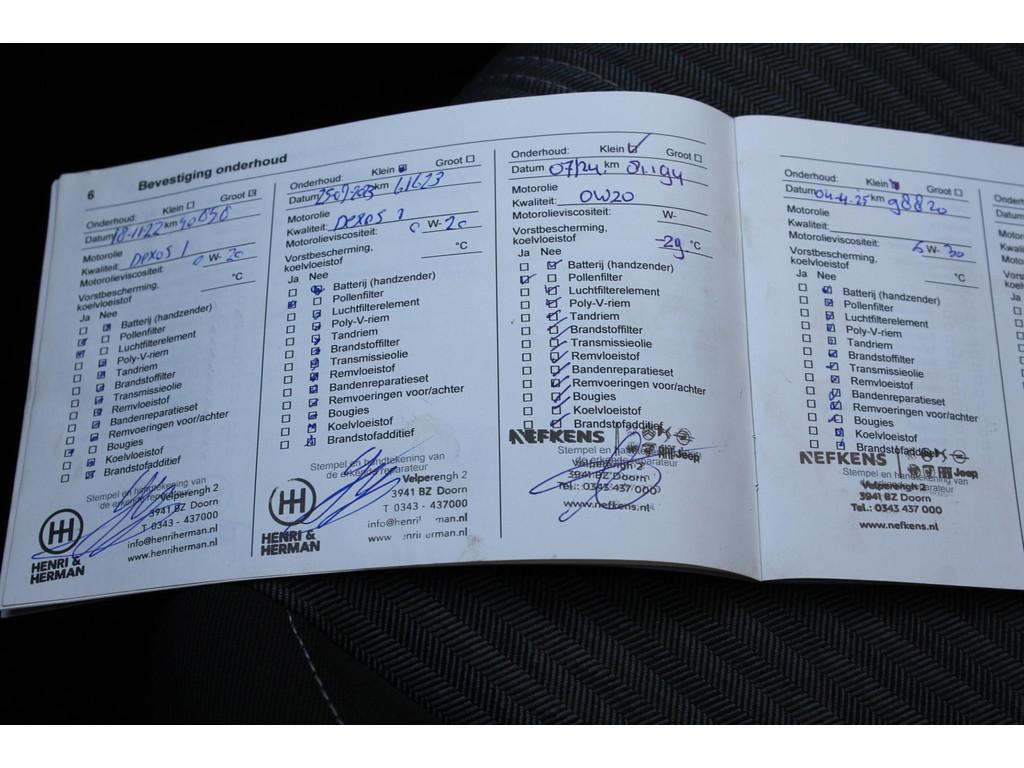 6 Bevestiging onderhoud
Onderhoud: Klein Groot
Datum 18-11-22 km 40858
Motorolie
Kwaliteit: Dexos 1
Motorolieviscositeit: 0 W- 20
Vorstbescherming,
koelvloeistof °C
Ja Nee
Batterij (handzender)
Pollenfilter
Luchtfilterelement
Poly-V-riem
Tandriem
Brandstoffilter
Transmissieolie
Remvloeistof
Bandenreparatieset
Remvoeringen voor/achter
Bougies
Koelvloeistof
Brandstofadditief
Stempel en handtekening van
de erkende reparateur
Velperengh 2
3941 BZ Doorn
T 0343 - 437000
info@henriherman.nl
www.henriherman.nl
HH
HENRI &
HERMAN
Onderhoud: Klein Groot
Datum km 61623
Motorolie
Kwaliteit: Dexos 1
Motorolieviscositeit: 0 W- 20
Vorstbescherming,
koelvloeistof °C
Ja Nee
Batterij (handzender)
Pollenfilter
Luchtfilterelement
Poly-V-riem
Tandriem
Brandstoffilter
Transmissieolie
Remvloeistof
Bandenreparatieset
Remvoeringen voor/achter
Bougies
Koelvloeistof
Brandstofadditief
Stempel en handtekening van
de erkende reparateur
Velperengh 2
3941 BZ Doorn
T 0343 - 437000
info@henri man.nl
www. erman.nl
HH
HENRI &
HERMAN
Onderhoud: Klein Groot
Datum 07/24 km 81194
Motorolie
Kwaliteit: 0W20
Motorolieviscositeit: W-
Vorstbescherming,
koelvloeistof -29 °C
Ja Nee
Batterij (handzender)
Pollenfilter
Luchtfilterelement
Poly-V-riem
Tandriem
Brandstoffilter
Transmissieolie
Remvloeistof
Bandenreparatieset
Remvoeringen voor/achter
Bougies
Koelvloeistof
Brandstofadditief
NEFKENS
Jeep
Stempel en handtekening van
de erkende reparateur
Velperengh 2
3941 BZ Doorn
Tel.: 0343 437 000
www.nefkens.nl
Onderhoud: Klein Groot
Datum 04-4-25 km 98820
Motorolie
Kwaliteit:
Motorolieviscositeit: 5 W- 30
Vorstbescherming,
koelvloeistof °C
Ja Nee
Batterij (handzender)
Pollenfilter
Luchtfilterelement
Poly-V-riem
Tandriem
Brandstoffilter
Transmissieolie
Remvloeistof
Bandenreparatieset
Remvoeringen voor/achter
Bougies
Koelvloeistof
Brandstofadditief
NEFKENS
Jeep
Stempel en handtekening van
de erkende reparateur
Velperengh 2
3941 BZ Doorn
Tel.: 0343 437 000
www.nefkens.nl